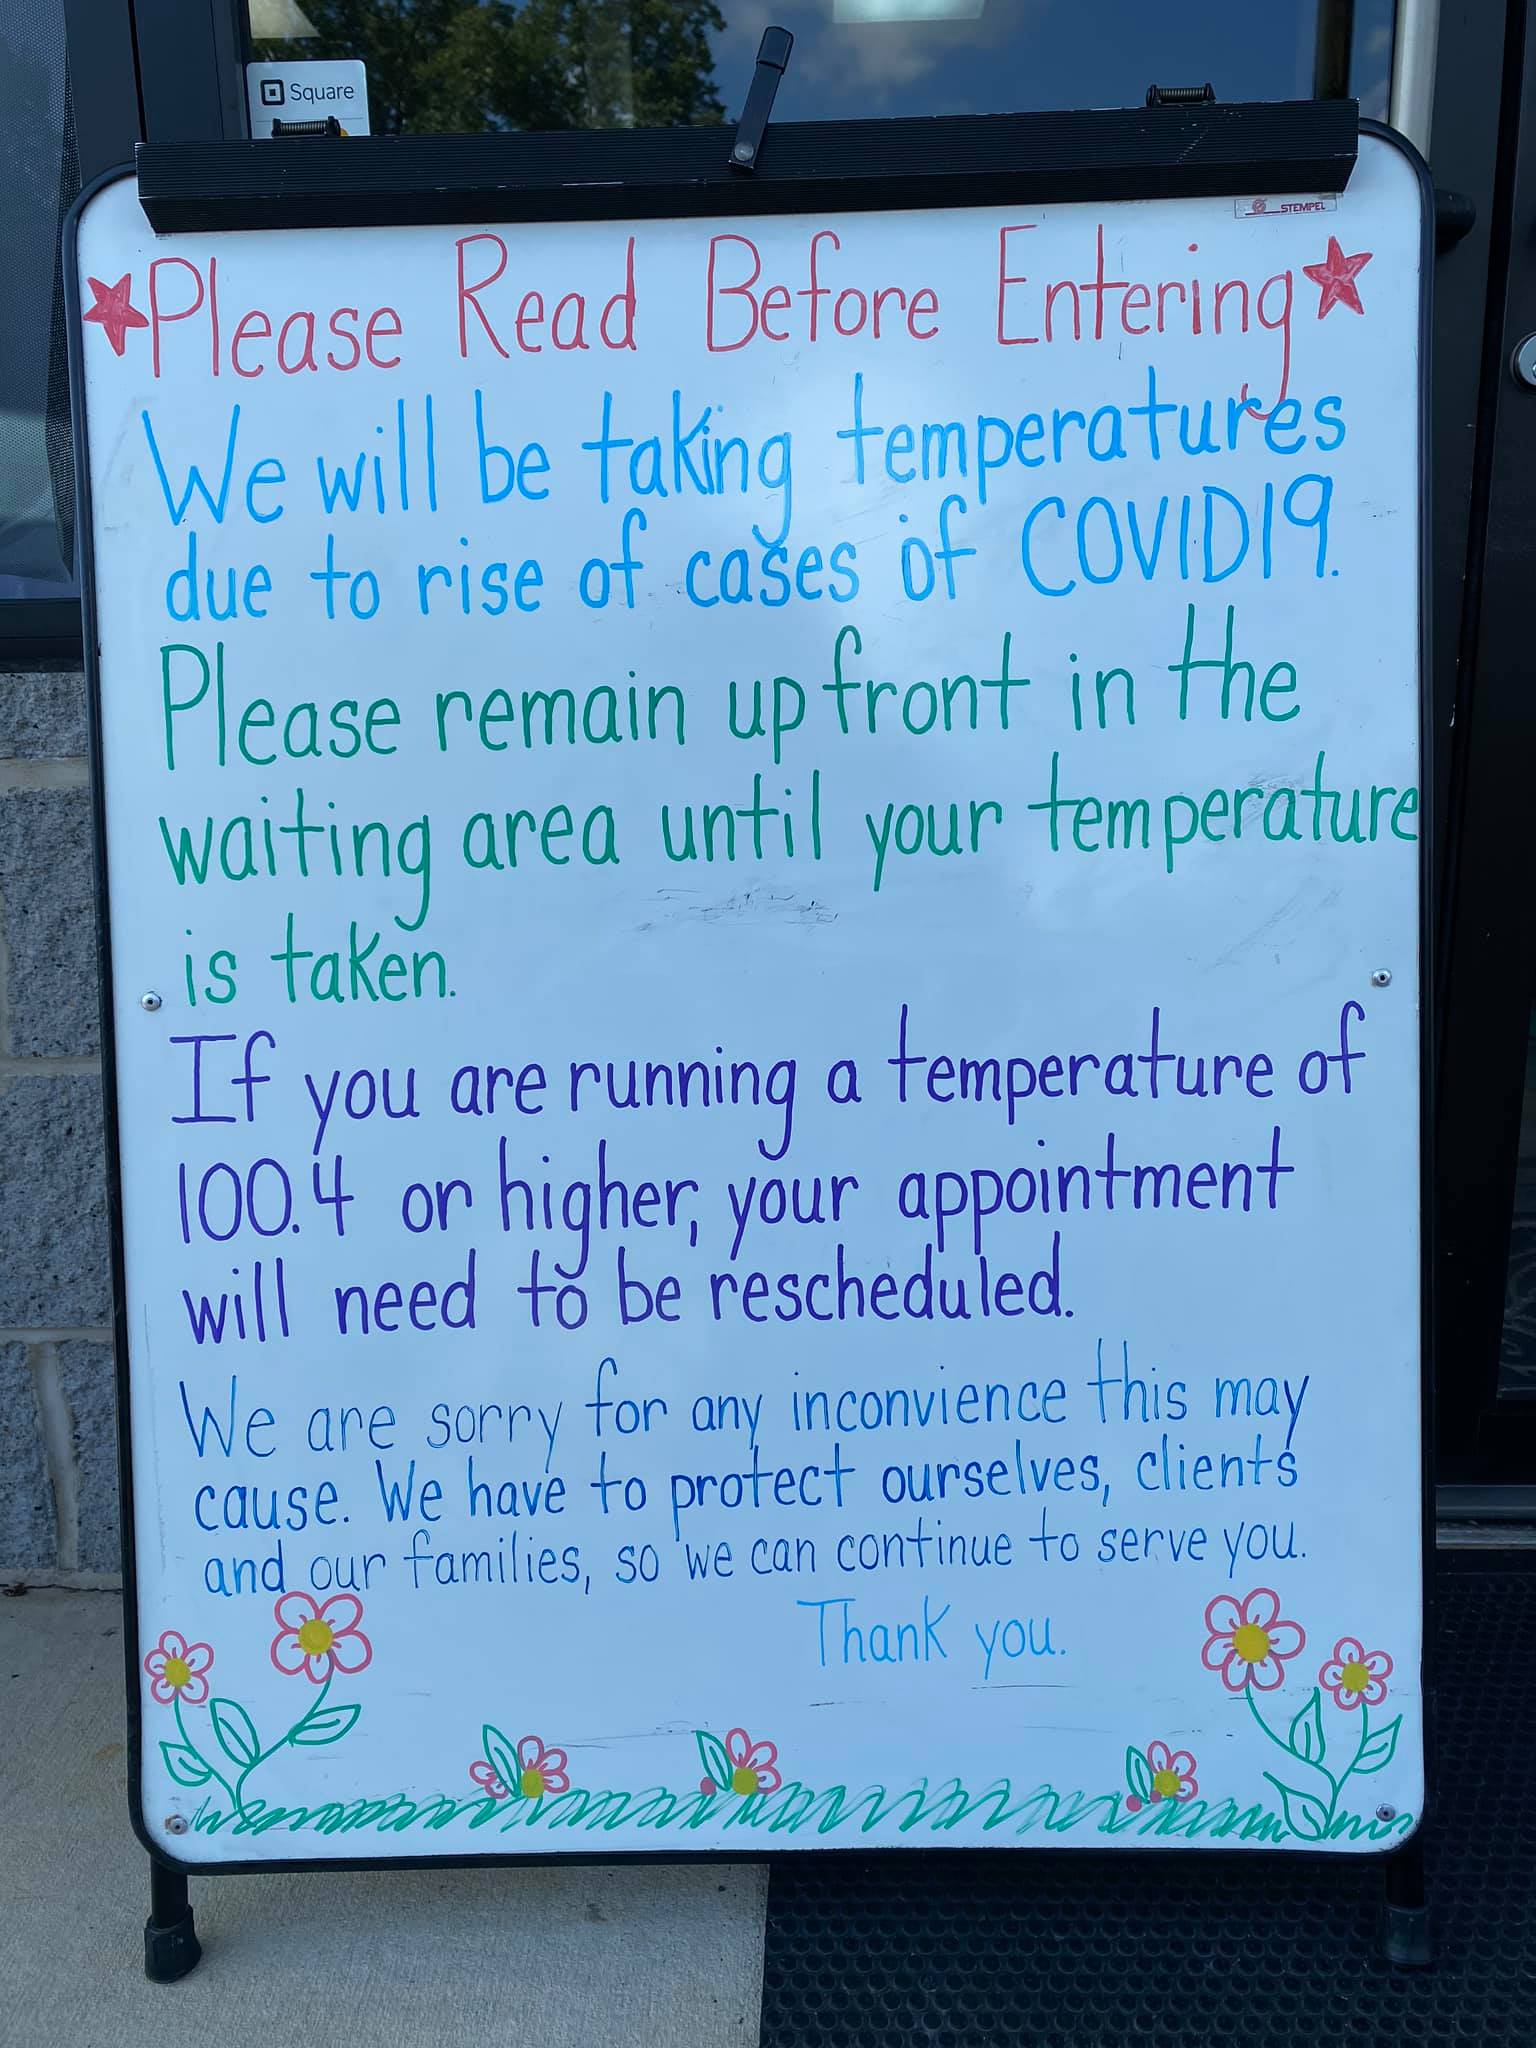 Square
STEMPEL
Please Read Before Entering
We will be taking temperatures
due to rise of cases of COVID19.
Please remain up front in the
waiting area until your temperature
is taken.
If you are running a temperature of
100.4 or higher, your appointment
will need to be rescheduled.
We are sorry for any inconvience this may
cause. We have to protect ourselves, clients
and our families, so we can continue to serve you.
Thank you.